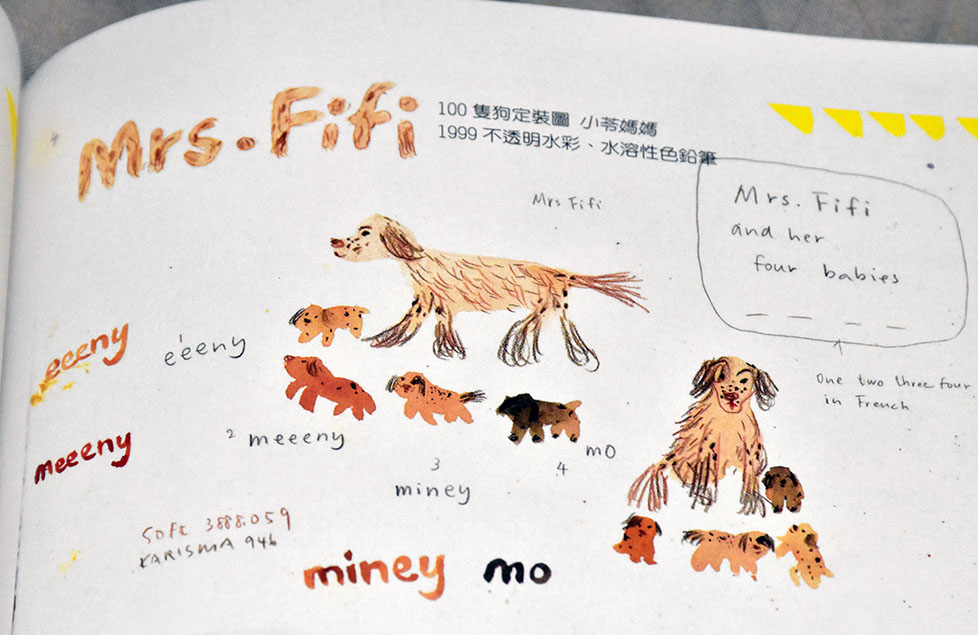 Mrs. Fifi
100 隻狗定裝圖 小苓媽媽
1999 不透明水彩、水溶性色鉛筆
Mrs Fifi
Mrs. Fifi
and her
four babies
One two three four
in French
eeeny
e'eeny
meeeny
2 meeeny
3
miney
4
mo
Soft 3888.059
KARISMA 946
miney mo